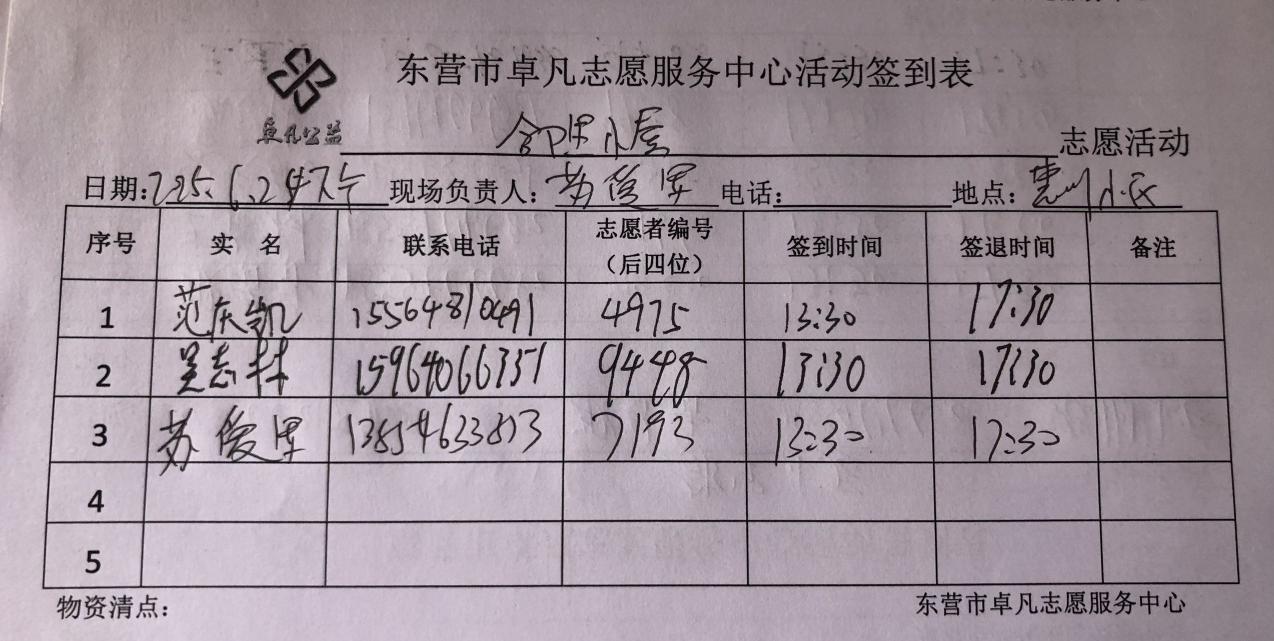 东营市卓凡志愿服务中心活动签到表
卓凡公益
小屋 志愿活动
日期: 现场负责人: 苏俊军 电话: 地点:
序号 实 名 联系电话 志愿者编号（后四位） 签到时间 签退时间 备注
1 范庆凯 15564810491 4975 13:30 17:30
2 吴志林 15964066351 9448 13:30 17:30
3 苏俊军 7193 13:30 17:30
4
5
物资清点： 东营市卓凡志愿服务中心